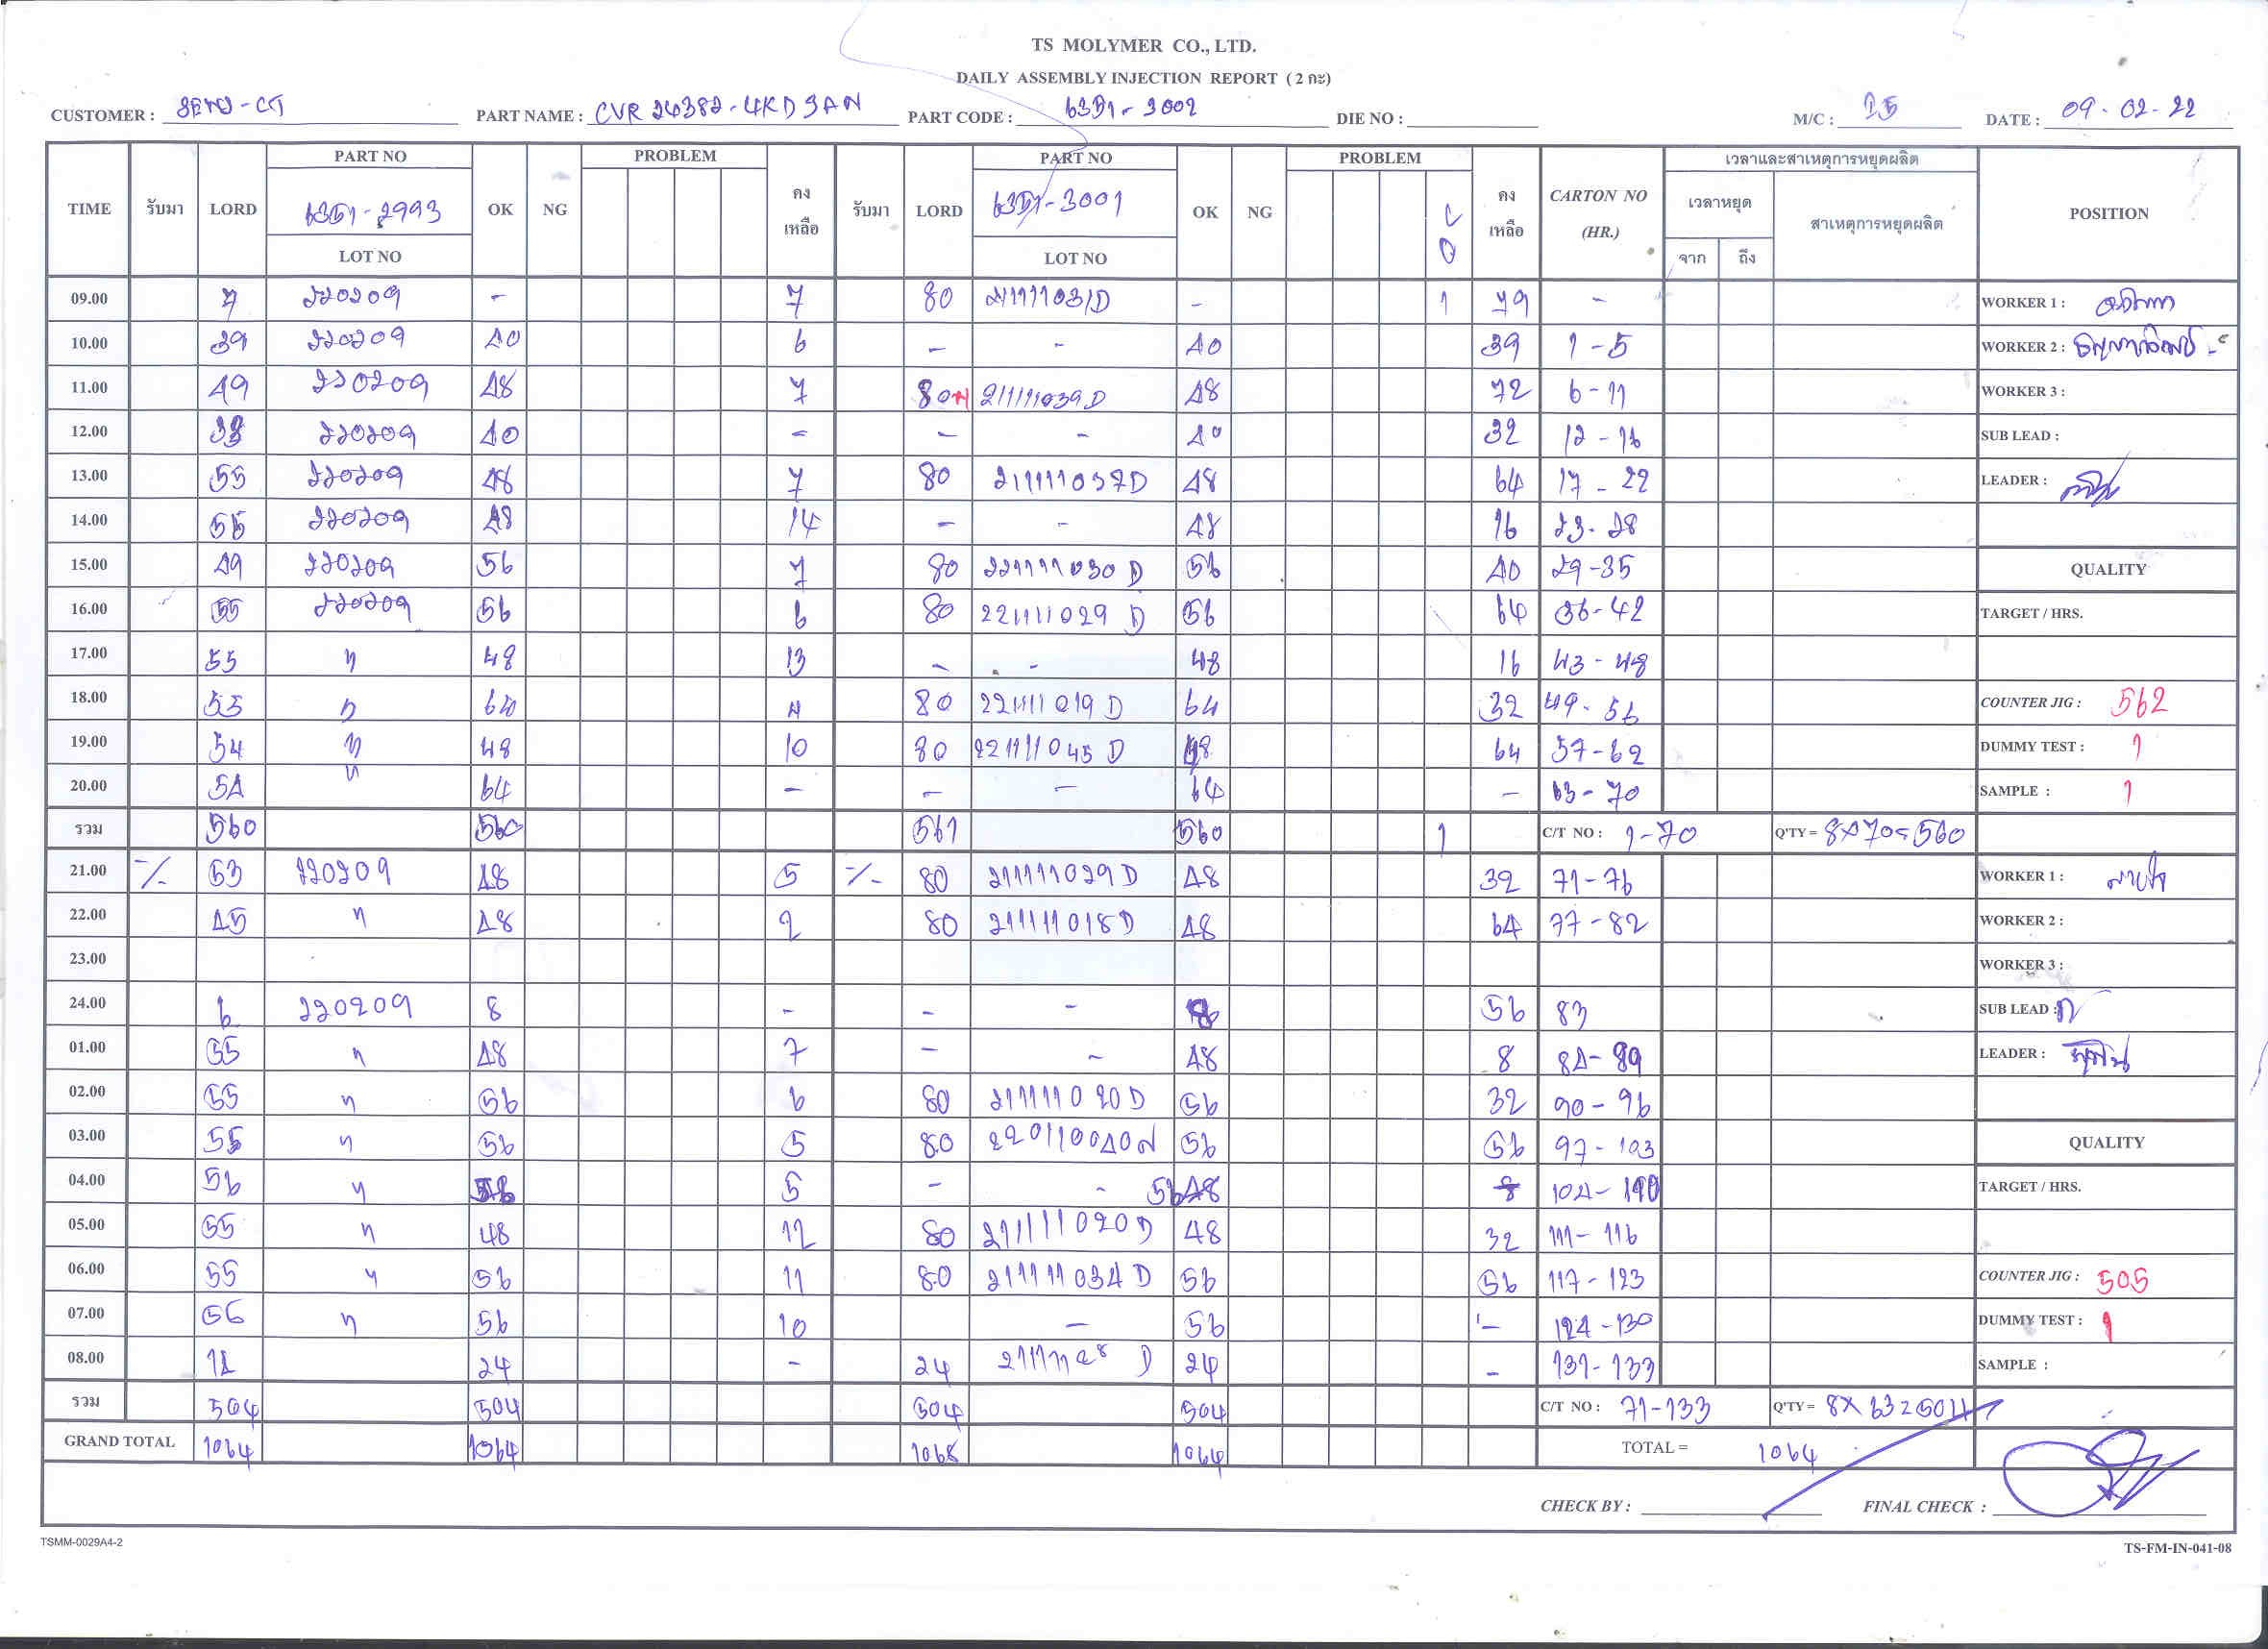 TS MOLYMER CO., LTD.
DAILY ASSEMBLY INJECTION REPORT ( 2 กะ)
CUSTOMER : PART NAME : CVR 24382-4KD3AN PART CODE : 6351-3002 DIE NO : M/C : 25 DATE : 09-02-22
TIME รับมา LORD PART NO 6351-2993 LOT NO OK NG PROBLEM คงเหลือ รับมา LORD PART NO 6351-3001 LOT NO OK NG PROBLEM คงเหลือ CARTON NO (HR.) เวลาและสาเหตุการหยุดผลิต เวลาหยุด จาก ถึง สาเหตุการหยุดผลิต POSITION
09.00 7 220209 - 7 80 - 1 79 - WORKER 1 :
10.00 39 220209 40 6 - - 40 39 1-5 WORKER 2 :
11.00 49 220209 48 7 80 211111039D 48 72 6-11 WORKER 3 :
12.00 33 220209 40 - - - 40 32 12-16 SUB LEAD :
13.00 55 220209 48 7 80 211111037D 48 64 17-22 LEADER :
14.00 55 220209 48 14 - - 48 16 23-28
15.00 49 220209 56 7 80 221111030D 56 40 29-35 QUALITY
16.00 55 220209 56 6 80 221111029D 56 64 36-42 TARGET / HRS.
17.00 55 ท 48 13 - - 48 16 43-48
18.00 53 64 4 80 221111019D 64 32 49-56 COUNTER JIG : 562
19.00 54 ท 48 10 80 221111045D 48 64 57-62 DUMMY TEST : 1
20.00 54 ท 64 - - - 64 - 63-70 SAMPLE : 1
รวม 560 560 561 560 1 C/T NO : 1-70 Q'TY = 8x70=560
21.00 -/- 53 220209 48 5 -/- 80 211111029D 48 32 71-76 WORKER 1 :
22.00 45 ท 48 2 80 211111018D 48 64 77-82 WORKER 2 :
23.00 WORKER 3 :
24.00 6 220209 8 - - - 8 56 83 SUB LEAD :
01.00 55 ท 48 7 - - 48 8 84-89 LEADER :
02.00 55 ท 56 6 80 211111020D 56 32 90-96
03.00 55 ท 56 5 80 220110040N 56 56 97-103 QUALITY
04.00 56 ท 56 5 - - 56 8 104-110 TARGET / HRS.
05.00 55 ท 48 12 80 211111020D 48 32 111-116
06.00 55 ท 56 11 80 211111034D 56 56 117-123 COUNTER JIG : 505
07.00 56 ท 56 10 - 56 - 124-130 DUMMY TEST : 1
08.00 14 24 - 24 24 - 131-133 SAMPLE :
รวม 504 504 504 504 C/T NO : 71-133 Q'TY = 8x63=504
GRAND TOTAL 1064 1064 1065 1064 TOTAL = 1064
CHECK BY : FINAL CHECK :
TSMM-0029A4-2 TS-FM-IN-041-08